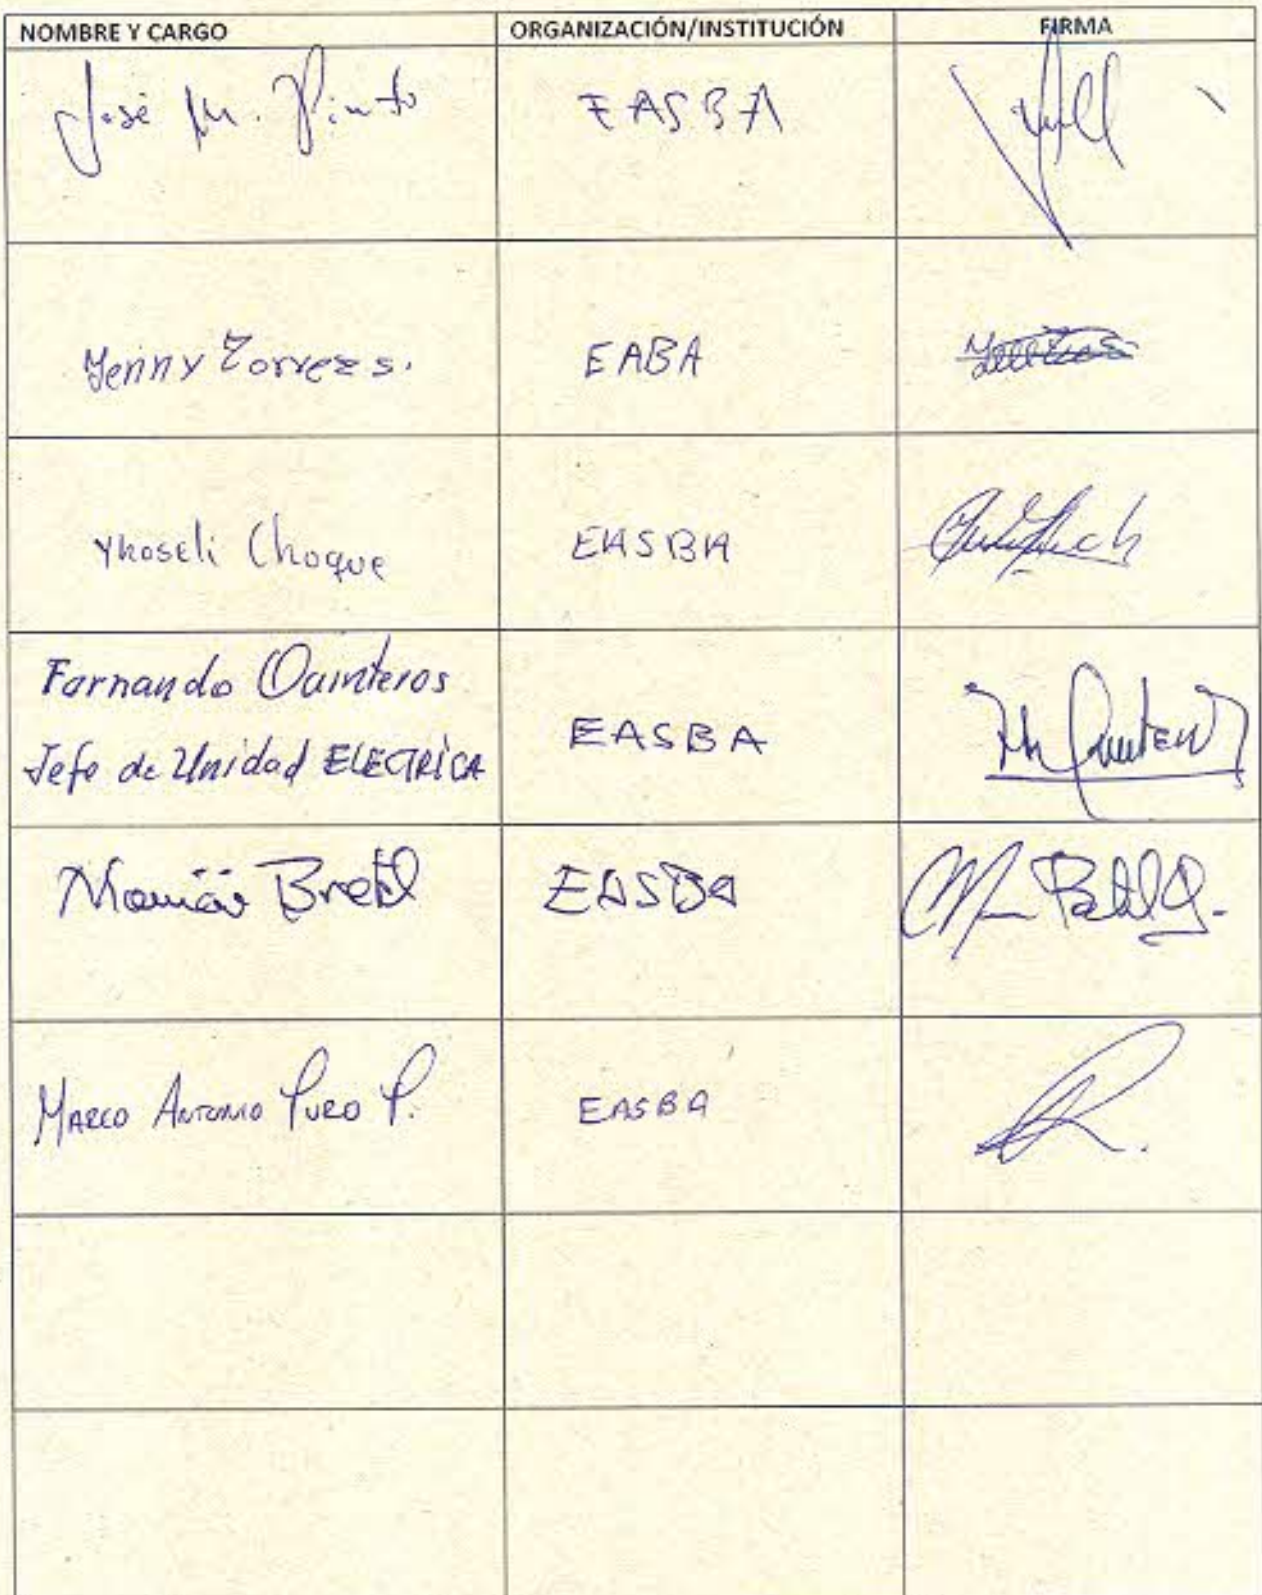 NOMBRE Y CARGO ORGANIZACIÓN/INSTITUCIÓN FIRMA
José M. Pinto EASBA
Yenny Torrez s. EABA
Yhoseli Choque EASBA
Fernando Quinteros
Jefe de Unidad ELECTRICA EASBA
EASBA
MARCO ANTONIO EASBA